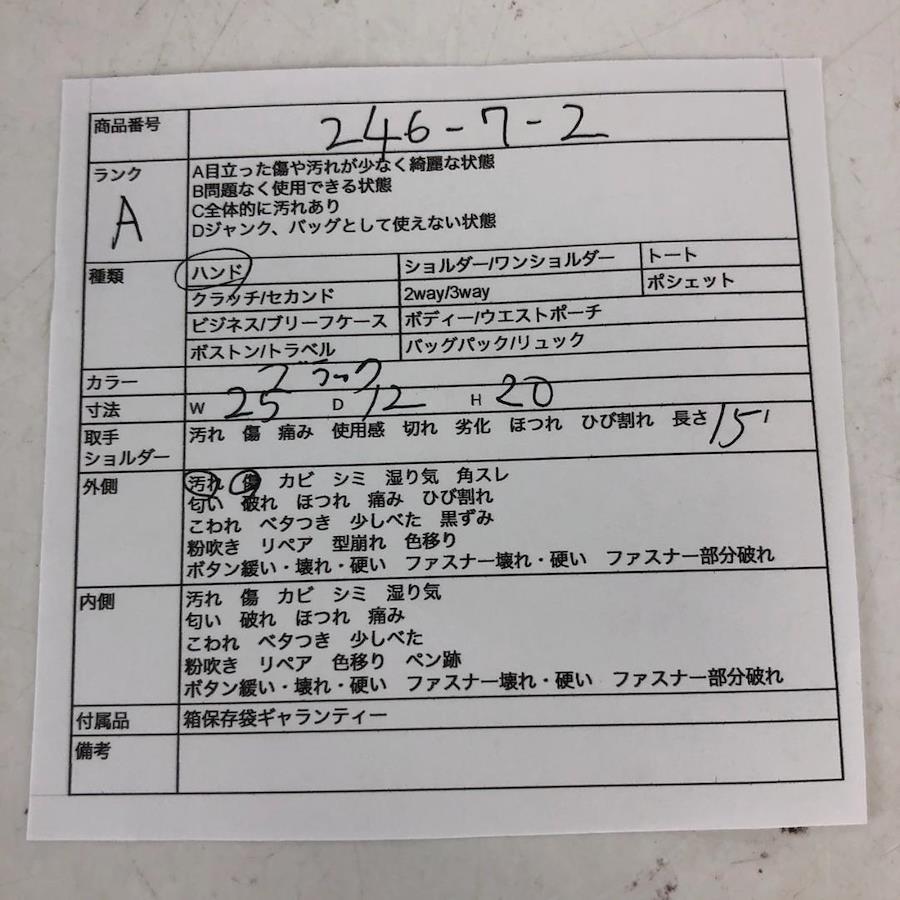 商品番号 246-7-2
ランク A
A目立った傷や汚れが少なく綺麗な状態
B問題なく使用できる状態
C全体的に汚れあり
Dジャンク、バッグとして使えない状態
種類 ハンド ショルダー/ワンショルダー トート
クラッチ/セカンド 2way/3way ポシェット
ビジネス/ブリーフケース ボディー/ウエストポーチ
ボストン/トラベル バッグパック/リュック
カラー ブラック
寸法 W 25 D 12 H 20
取手 汚れ 傷 痛み 使用感 切れ 劣化 ほつれ ひび割れ 長さ 15
ショルダー
外側 汚れ 傷 カビ シミ 湿り気 角スレ
匂い 破れ ほつれ 痛み ひび割れ
こわれ ベタつき 少しべた 黒ずみ
粉吹き リペア 型崩れ 色移り
ボタン緩い・壊れ・硬い ファスナー壊れ・硬い ファスナー部分破れ
内側 汚れ 傷 カビ シミ 湿り気
匂い 破れ ほつれ 痛み
こわれ ベタつき 少しべた
粉吹き リペア 色移り ペン跡
ボタン緩い・壊れ・硬い ファスナー壊れ・硬い ファスナー部分破れ
付属品 箱保存袋ギャランティー
備考